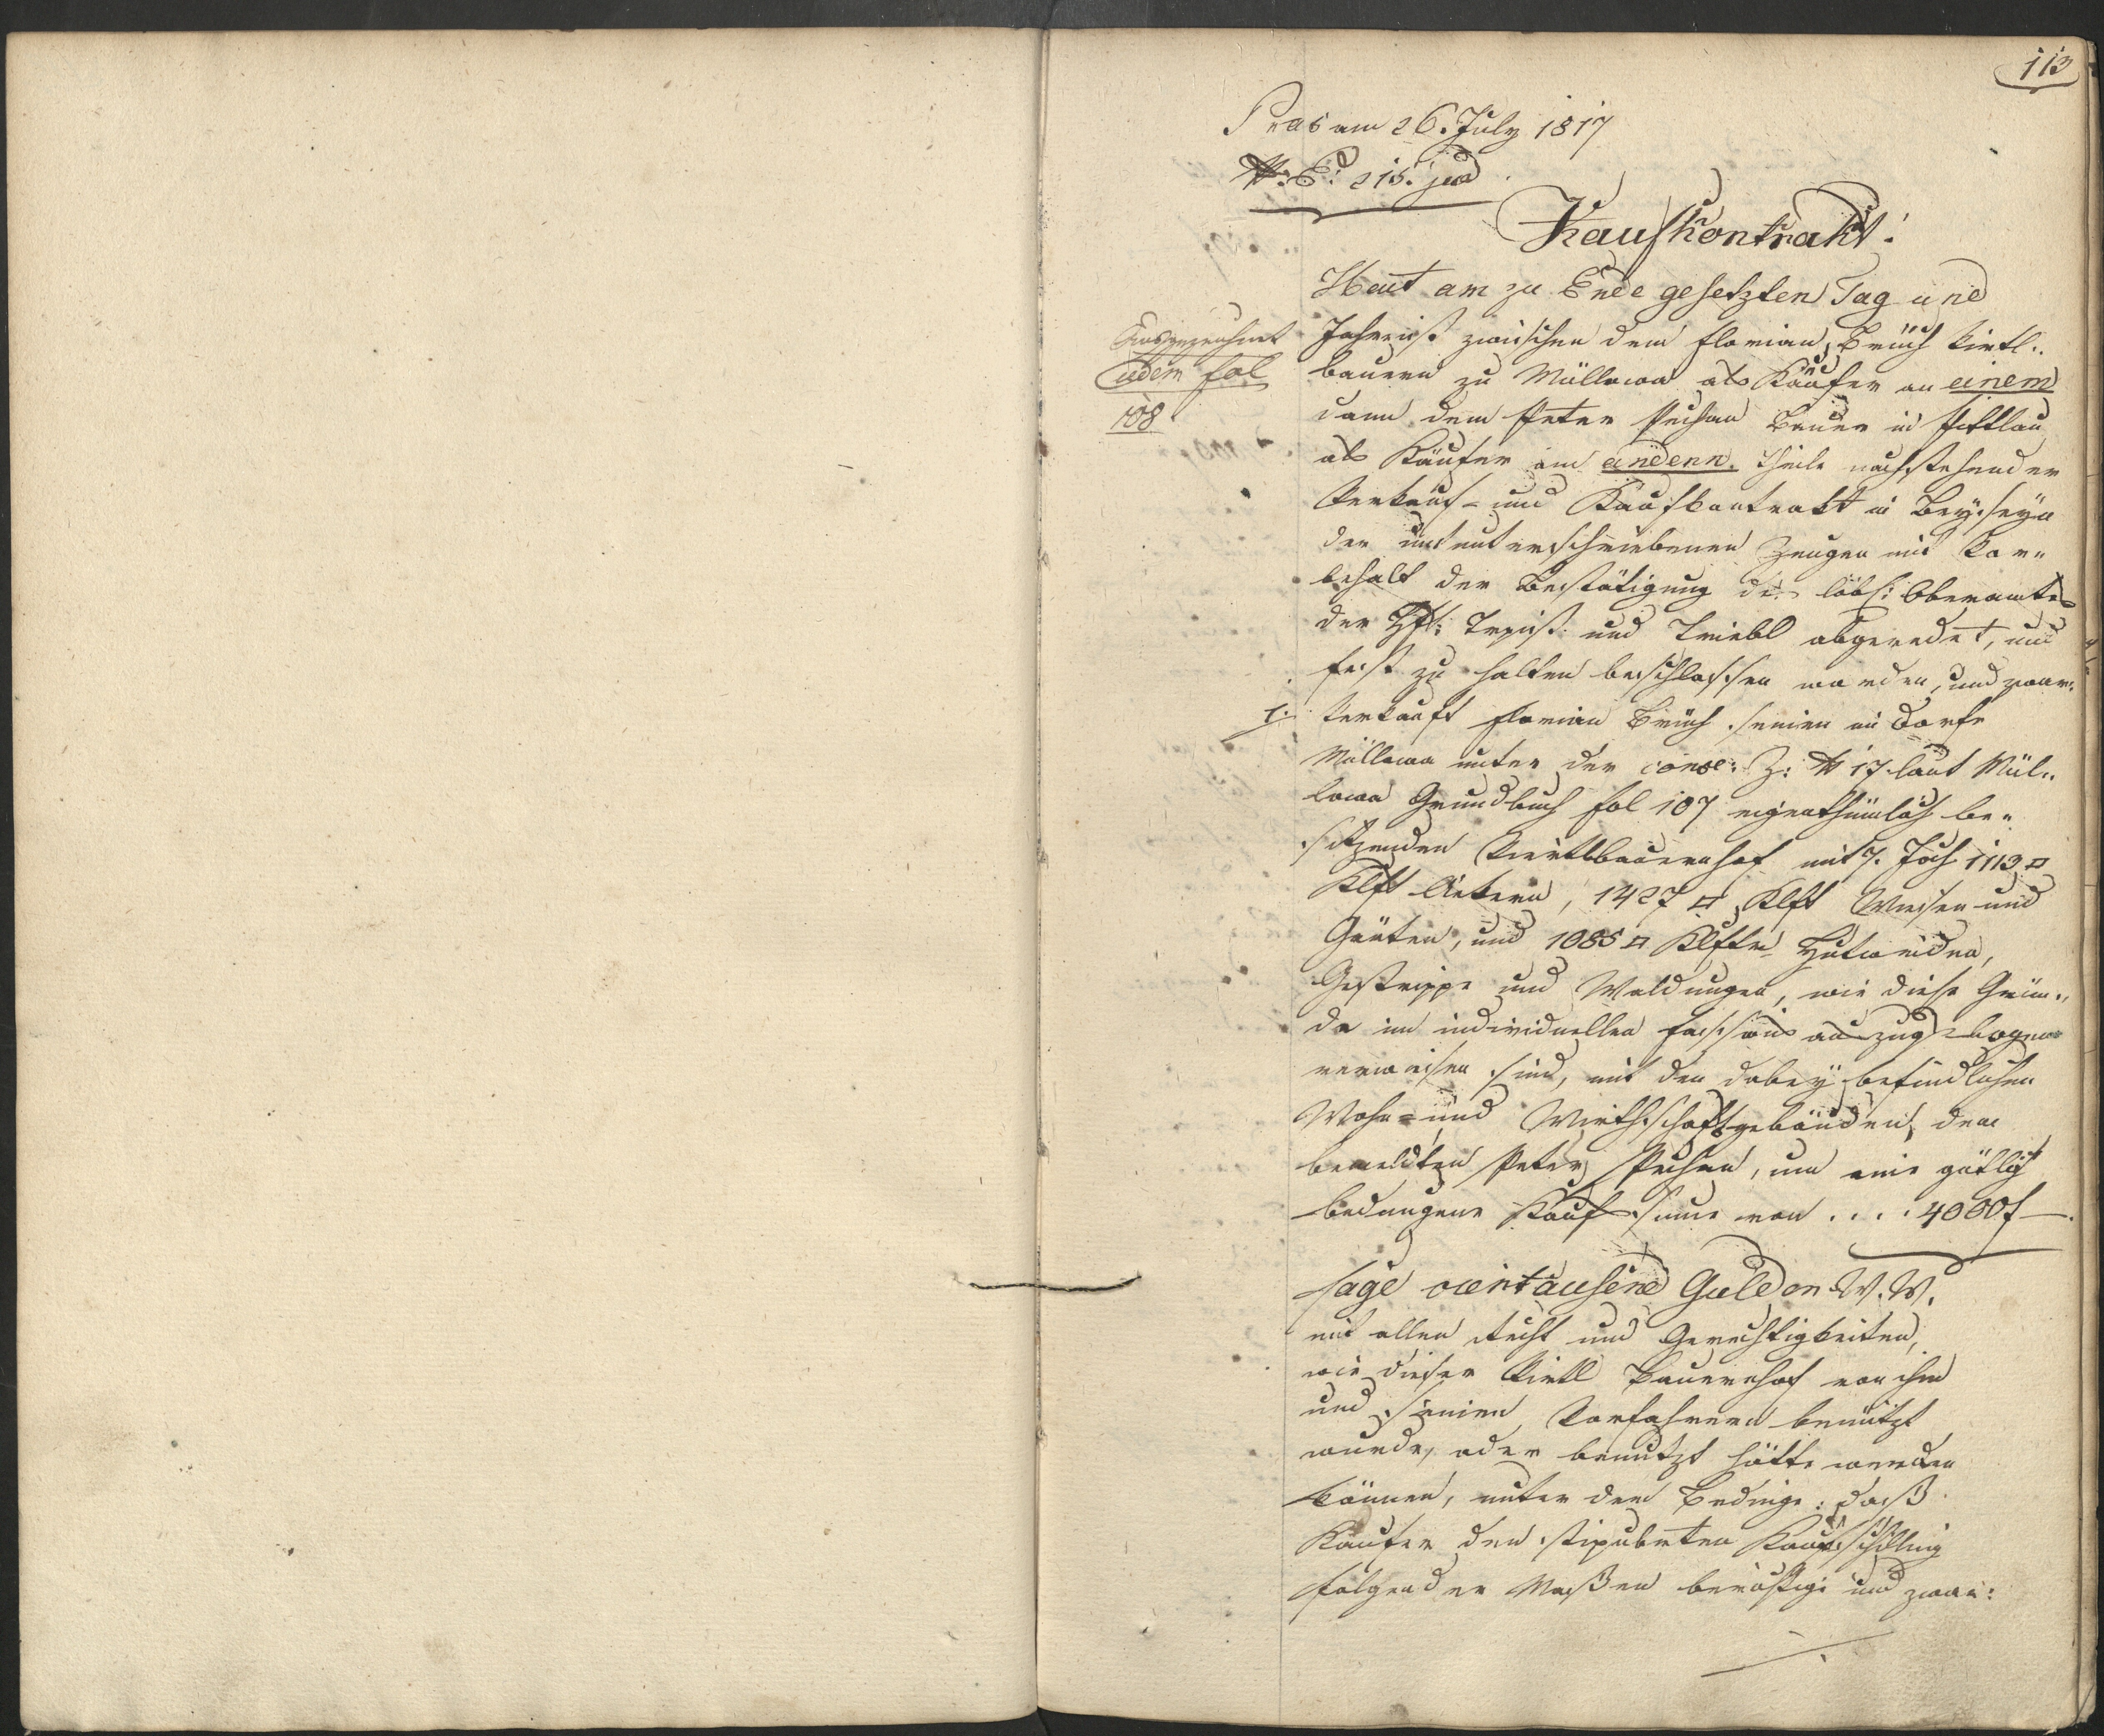 113
Pras am 26. July 1817
N: E: 215. jud
Kaufkontrakt.
Heut am zu Ende gesetzten Tag und
Jahr ist zwischen dem Florian Bruch Virtl„
bauern zu Müllowa als Käufer an einem
dann dem Peter Pechan Bauer in Pittlau
als Käufer am andern Theile nachstehender
Verkauf- und Kaufkontrakt in Beyseyn
der unterschriebenen Zeugen mit Vor„
behalt der Bestätigung des löbl: Oberamtes
der Hft: Trpist und Triebl abgeredet, und
fest zu halten beschlossen worden, und zwar:
1. Verkauft Florian Bruch seinen im Dorfe
Müllowa unter der conse: Z: N 17 laut Mül„
lowa Grundbuch fol 107 eigenthümlich be„
sitzenden Viertlbauernhof mit 7. Joch 1113 □
Klft Aekern, 1427 □ Klft Wiesen und
Gärten, und 1085 □ Klftr Hutweiden,
Gestrippe und Waldungen, wie diese Grün„
de im individuellen Fassions auszugsbogen
verwiesen sind, mit den dabey befindlichen
Wohn- und Wirthschaftsgebäuden, dem
bemeldten Peter Pechan, um eine gütlich
bedungene Kaufsume von . . . . 4000 f —.
sage viertausend Gulden W. W.
mit allen Recht und Gerechtigkeiten,
wie dieser Virtl Bauernhof von ihm
und seinen Vorfahrern benützt
wurde, oder benutzt hätte werden
können, unter dem Bedinge: daß
Kaufer den stipulirten Kaufschilling
folgender Maßen berichtige und zwar:
Ausgezeichnet
eidem fol
108